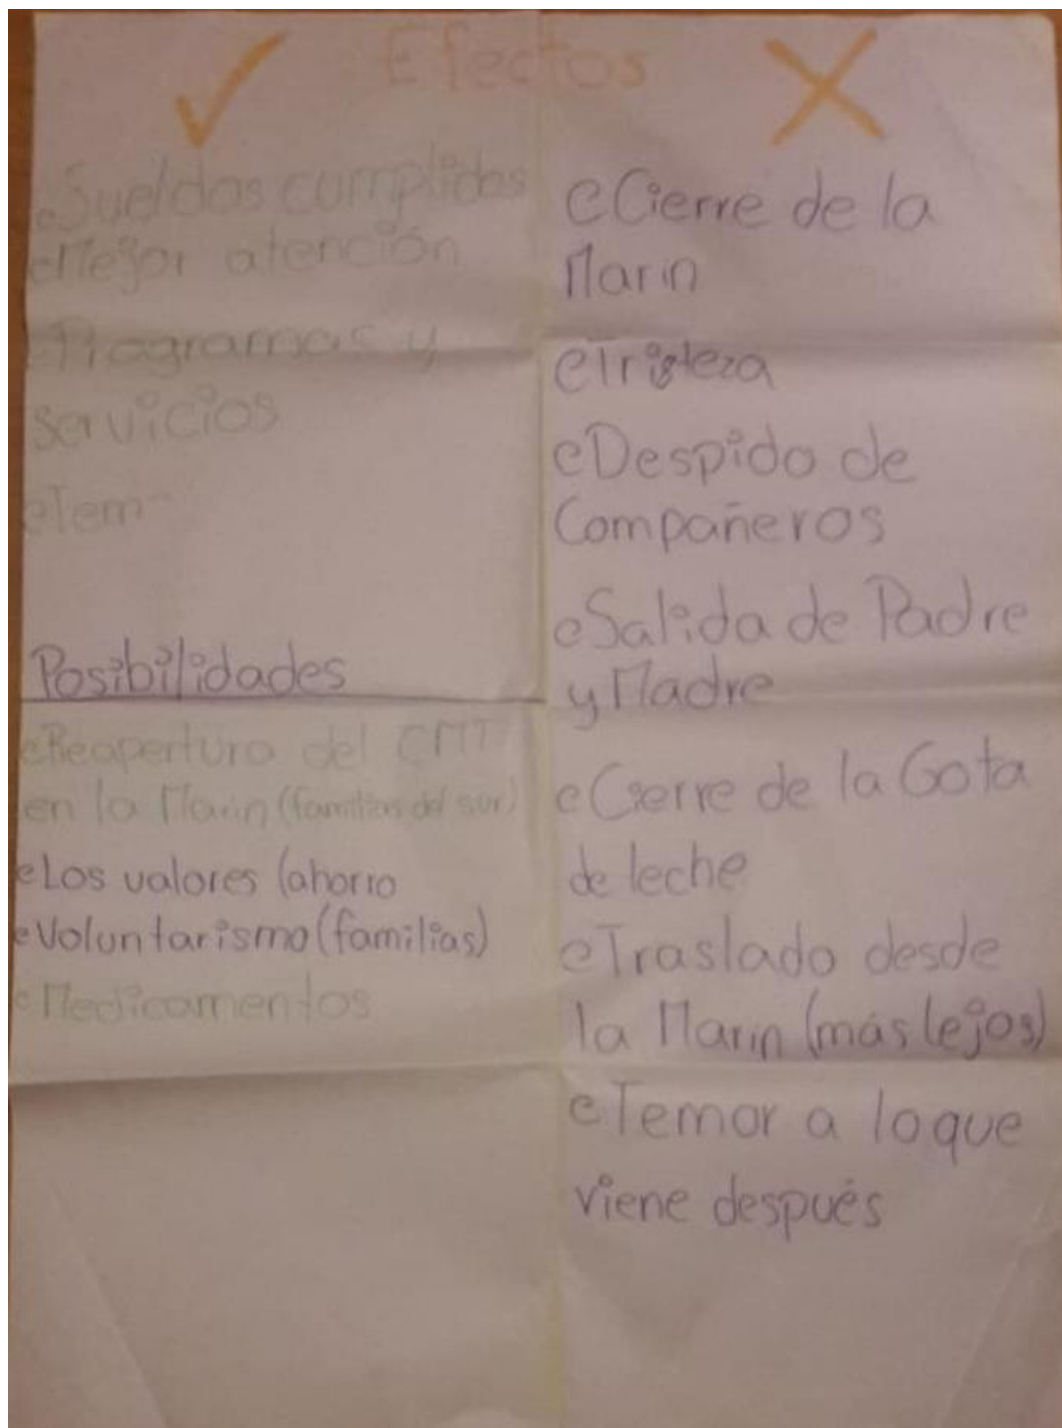 Efectos
Sueldos cumplidos
Mejor atención
Programas y
servicios
Tem
Posibilidades
Reapertura del CMT
en la Marin (familias del sur)
Los valores (ahorro
Voluntarismo (familias)
Medicamentos
Cierre de la
Marin
Tristeza
Despido de
Compañeros
Salida de Padre
y Madre
Cierre de la Gota
de leche
Traslado desde
la Marin (más lejos)
Temor a lo que
viene después